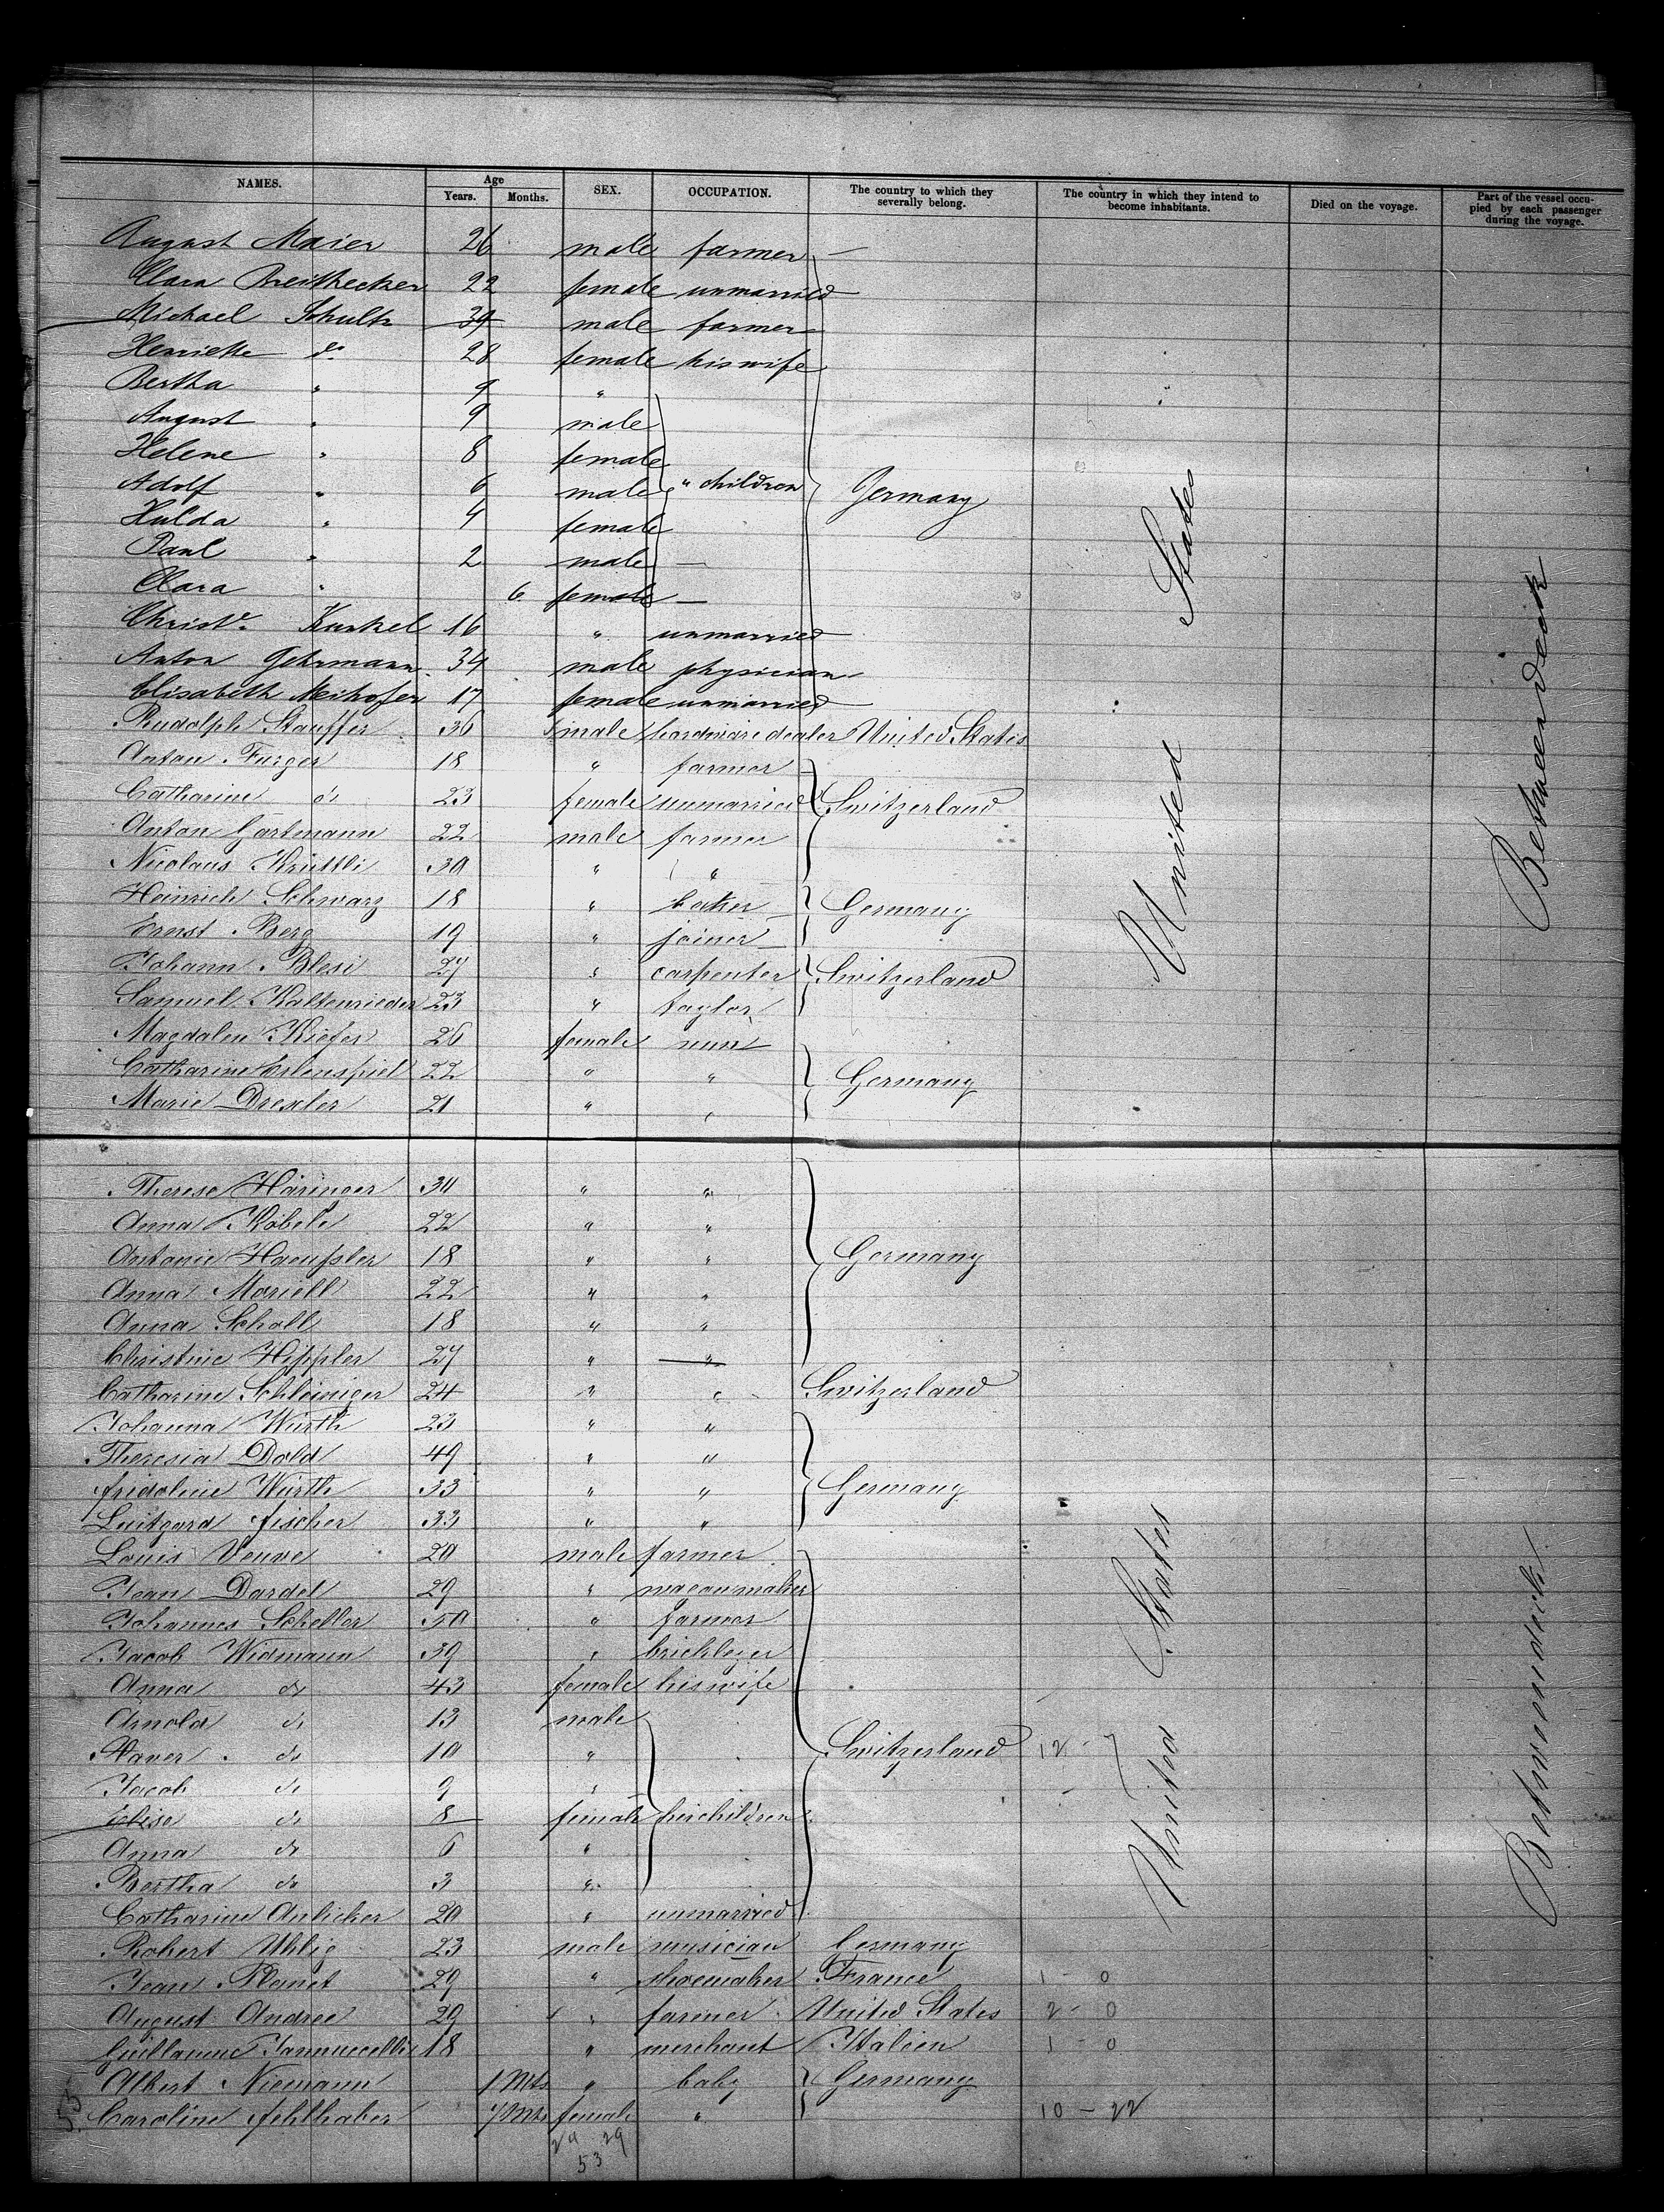 NAMES. Age Years. Months. SEX. OCCUPATION. The country to which they severally belong. The country in which they intend to become inhabitants. Died on the voyage. Part of the vessel occupied by each passenger during the voyage.
August Maier 26 male farmer
Clara Breithecker 22 female unmarried
Michael Schultz 39 male farmer
Henriette do 28 female his wife
Bertha " 9 "
August " 9 male
Helene " 8 female
Adolf " 6 male " children Germany
Hulda " 4 female
Paul " 2 male —
Clara " 6 female —
Christe. Kunkel 16 " unmarried
Anton Gehrmann 34 male physician
Elisabeth Meihofer 17 female unmarried
Rudolph Stauffer 36 male hardware dealer United States
Anton Furger 18 " farmer
Catharine do 23 female unmarried Switzerland
Anton Gartmann 22 male farmer
Nicolaus Krüttli 30 " "
Heinrich Schwarz 18 " baker Germany
Ernst Berg 19 " joiner
Johann Blesi 27 " carpenter Switzerland
Samuel Kaltenrieder 23 " taylor
Magdalen Kiefer 26 female nun
Catharine Erlenspiel 22 " " Germany
Marie Drexler 21 " "
United States
Between deck
Therese Häringer 30 " "
Anna Köbele 22 " "
Antonie Haeussler 18 " " Germany
Anna Moriell 22 " "
Anna Scholl 18 " "
Christine Hippler 27 " "
Catharine Schleiniger 24 " " Switzerland
Johanna Würth 23 " "
Theresia Dold 49 " "
Fridoline Würth 33 " " Germany
Luitgard Fischer 33 " "
Louis Veuve 20 male farmer
Jean Dardel 29 " wagonmaker
Johannes Scheller 50 " farmer
Jacob Widmann 39 " brickleyer
Anna do 43 female his wife
Arnold do 13 male
Xaver do 10 " Switzerland 12 - 7
Jacob do 9 "
Elise do 8 female heir children
Anna do 6 "
Bertha do 3 "
Catharine Anlicker 20 " unmarried
Robert Uhlig 23 male musician Germany
Jean Planet 29 " shoemaker France 1 - 0
August Andree 29 " farmer United States 2 - 0
Guillaume Jannuccelli 18 " merchant Italien 1 - 0
Albert Niemann 1 Mts " baby Germany
Caroline Fehlhaber 7 Mts female " 10 - 22
United States
Betweendeck
53
29
53